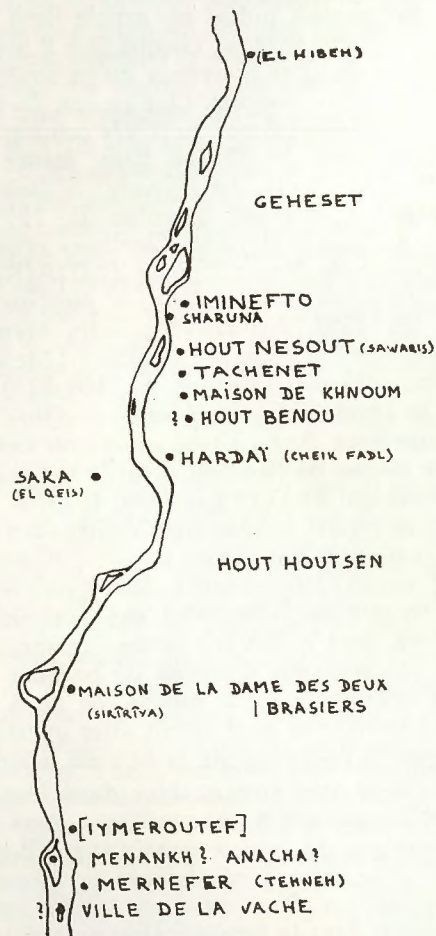 (EL HIBEH)
GEHESET
IMINEFTO
SHARUNA
HOUT NESOUT (SAWARIS)
TACHENET
MAISON DE KHNOUM
? HOUT BENOU
HARDAÏ (CHEIK FADL)
SAKA
(EL QEIS)
HOUT HOUTSEN
MAISON DE LA DAME DES DEUX
(SIRÎRÎYA) BRASIERS
[IYMEROUTEF]
MENANKH? ANACHA?
MERNEFER (TEHNEH)
? VILLE DE LA VACHE